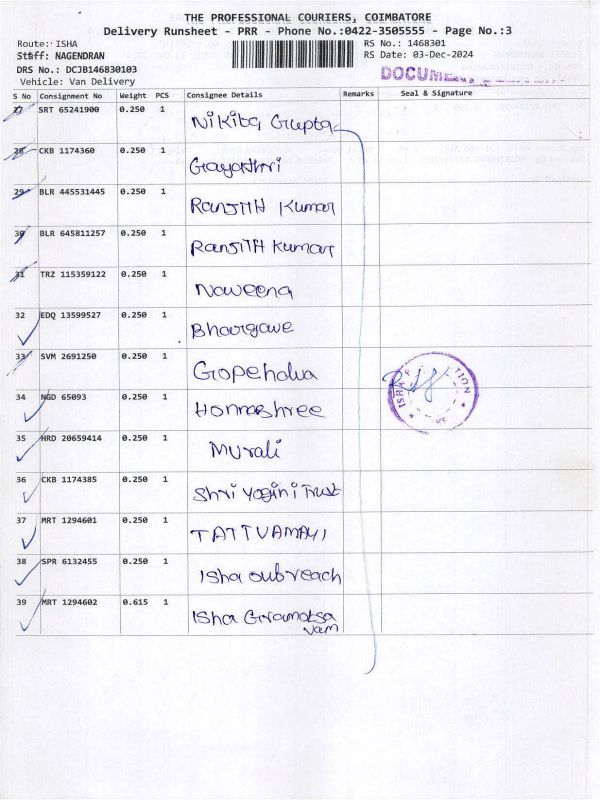 THE PROFESSIONAL COURIERS, COIMBATORE
Delivery Runsheet - PRR - Phone No.:0422-3505555 - Page No.:3
Route: ISHA RS No.: 1468301
Staff: NAGENDRAN RS Date: 03-Dec-2024
DRS No.: DCJB146830103
Vehicle: Van Delivery
S No Consignment No Weight PCS Consignee Details Remarks Seal & Signature
27 SRT 65241900 0.250 1 Nikita Gupta
28 CKB 1174360 0.250 1 Gayathri
29 BLR 445531445 0.250 1 Ranjith Kumar
30 BLR 645811257 0.250 1 Ranjith Kumar
31 TRZ 115359122 0.250 1 Naveena
32 EDQ 13599527 0.250 1 Bhargave
33 SVM 2691250 0.250 1
34 NGD 65093 0.250 1 Honnashree
35 HRD 20659414 0.250 1 Murali
36 CKB 1174385 0.250 1 Shri Yogini Trust
37 MRT 1294601 0.250 1 TATTVAMAYI
38 SPR 6132455 0.250 1 Isha outreach
39 MRT 1294602 0.615 1 Isha Gramotsa
vam
ISHA